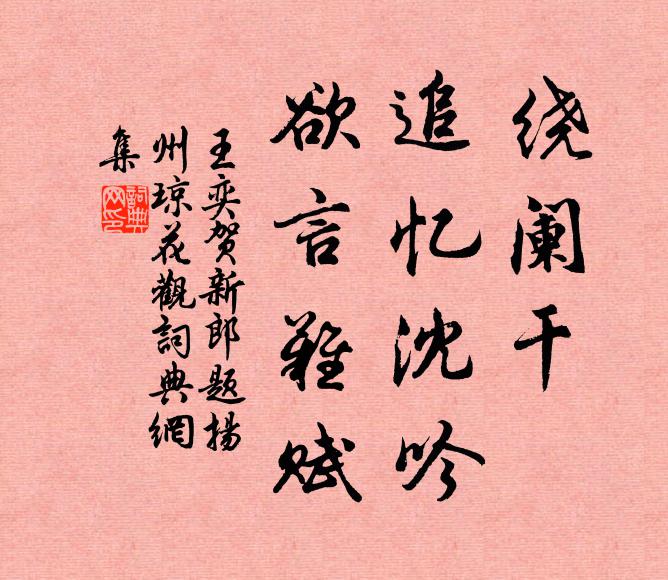 绕阑干
追忆沈吟
欲言难赋
王奕贺新郎题扬
州琼花觀詞典網
集
詞典
网印